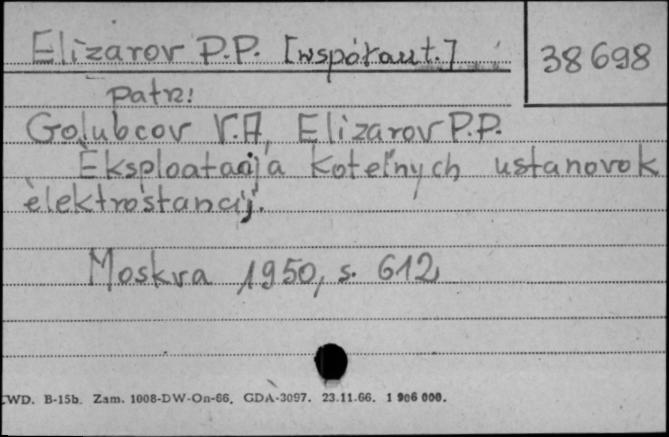 Elizarov P.P. [współaut.]
38698
patrz:
Golubcov V.A, Elizarov P.P.
Èksploatacija kotel'nych ustanovok
èlektrostancij.
Moskva 1950, s. 612
CWD. B-15b. Zam. 1008-DW-On-66. GDA-3097. 23.11.66. 1 906 000.